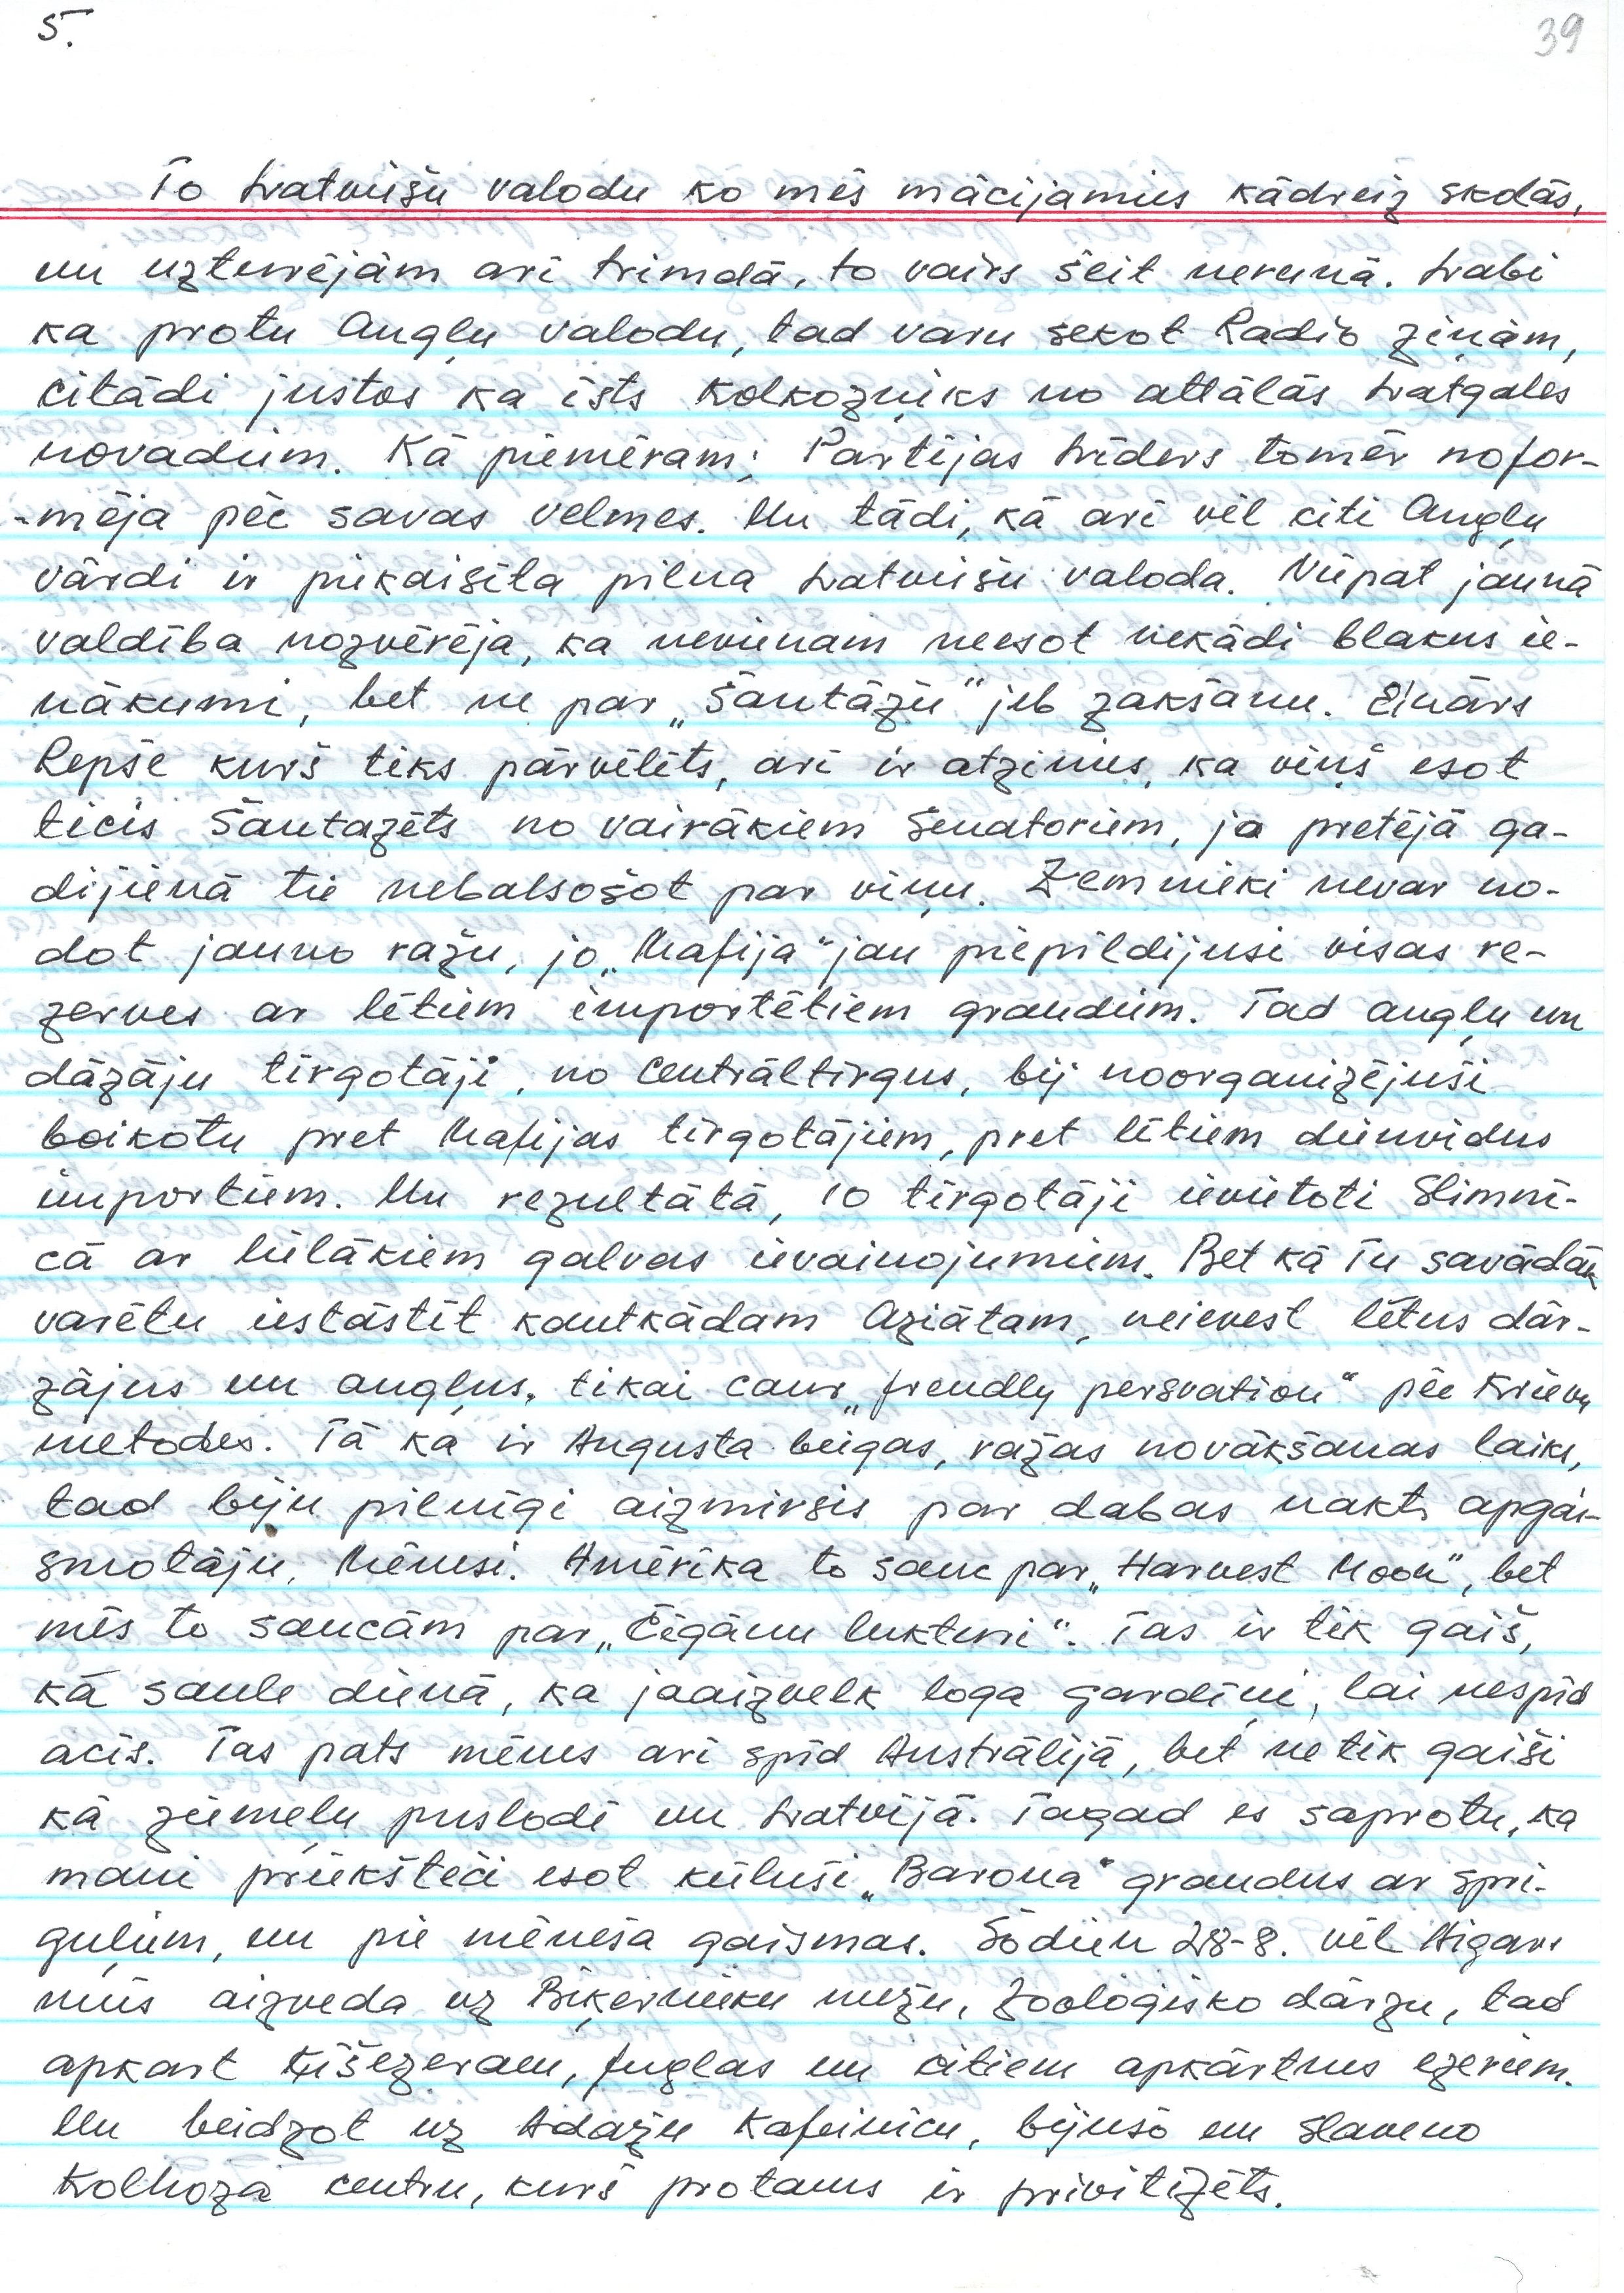 5.
39
To Latviešu valodu ko mēs mācijamies kādreiz skolās,
un uzturējām ari trimdā, to vairs šeit nerunā. Labi
ka protu Angļu valodu, tad varu sekot Radio ziņām,
citādi justos ka īsts Kolkozņiks no attālās Latgales
novadiem. Kā piemēram; Partijas Līders tomēr nofor-
-mēja pēc savas velmes. Un tādi, kā ari vēl citi Angļu
vārdi ir piekaisīta pilna Latviešu valoda. Nūpat jaunā
valdība nozvērēja, ka nevienam neesot nekādi blakus ie-
nākumi, bet ne par „Šantāžu" jeb zakšanu. Einārs
Repše kurš tiks pārvēlēts, ari ir atzinies, ka viņš esot
ticis Šantažēts no vairākiem Senatoriem, ja pretējā ga-
dijienā tie nebalsošot par viņu. Zemnieki nevar no-
dot jauno ražu, jo „Mafija" jau piepildijusi visas re-
zerves ar lētiem importētiem graudiem. Tad augļu un
dāzāju tirgotāji, no Centrāltirgus, bij noorganizējuši
boikotu pret Mafijas tirgotājiem, pret lētiem dienvidus
importiem. Un rezultātā, 10 tirgotāji ievietoti Slimnī-
cā ar lielākiem galvas ievainojumiem. Bet kā Tu savādāk
varētu iestāstīt kautkādam Aziātam, neievest lētus dār-
zājus un augļus, tikai caur „frendly persvation" pēc Krievu
metodes. Tā ka ir Augusta beigas, ražas novākšanas laiks,
tad biju pilnīgi aizmirsis par dabas nakts apgai-
smotāju, Mēnesi. Amērika to sauc par „Harvest Moon", bet
mēs to saucām par „Čigānu lukturi". Tas ir tik gaiš,
kā saule dienā, ka jaaizvelk loga gardīņi, lai nespīd
acīs. Tas pats mēnes ari spīd Austrālijā, bet ne tik gaiši
kā ziemeļu puslodē un Latvijā. Tagad es saprotu, ka
mani priekšteči esot kūluši „Barona" graudus ar spri-
guļiem, un pie mēneša gaismas. Šodien 28-8. vēl Aigars
mūs aizveda uz Biķernieku mežu, Zooloģisko dārzu, tad
apkart Ķīšezeram, Juglas un citiem apkārtnes ezeriem.
Un beidzot uz Adažu Kafeinicu, bijušo un slaveno
Kolhoza centru, kurš protams ir privitizēts.